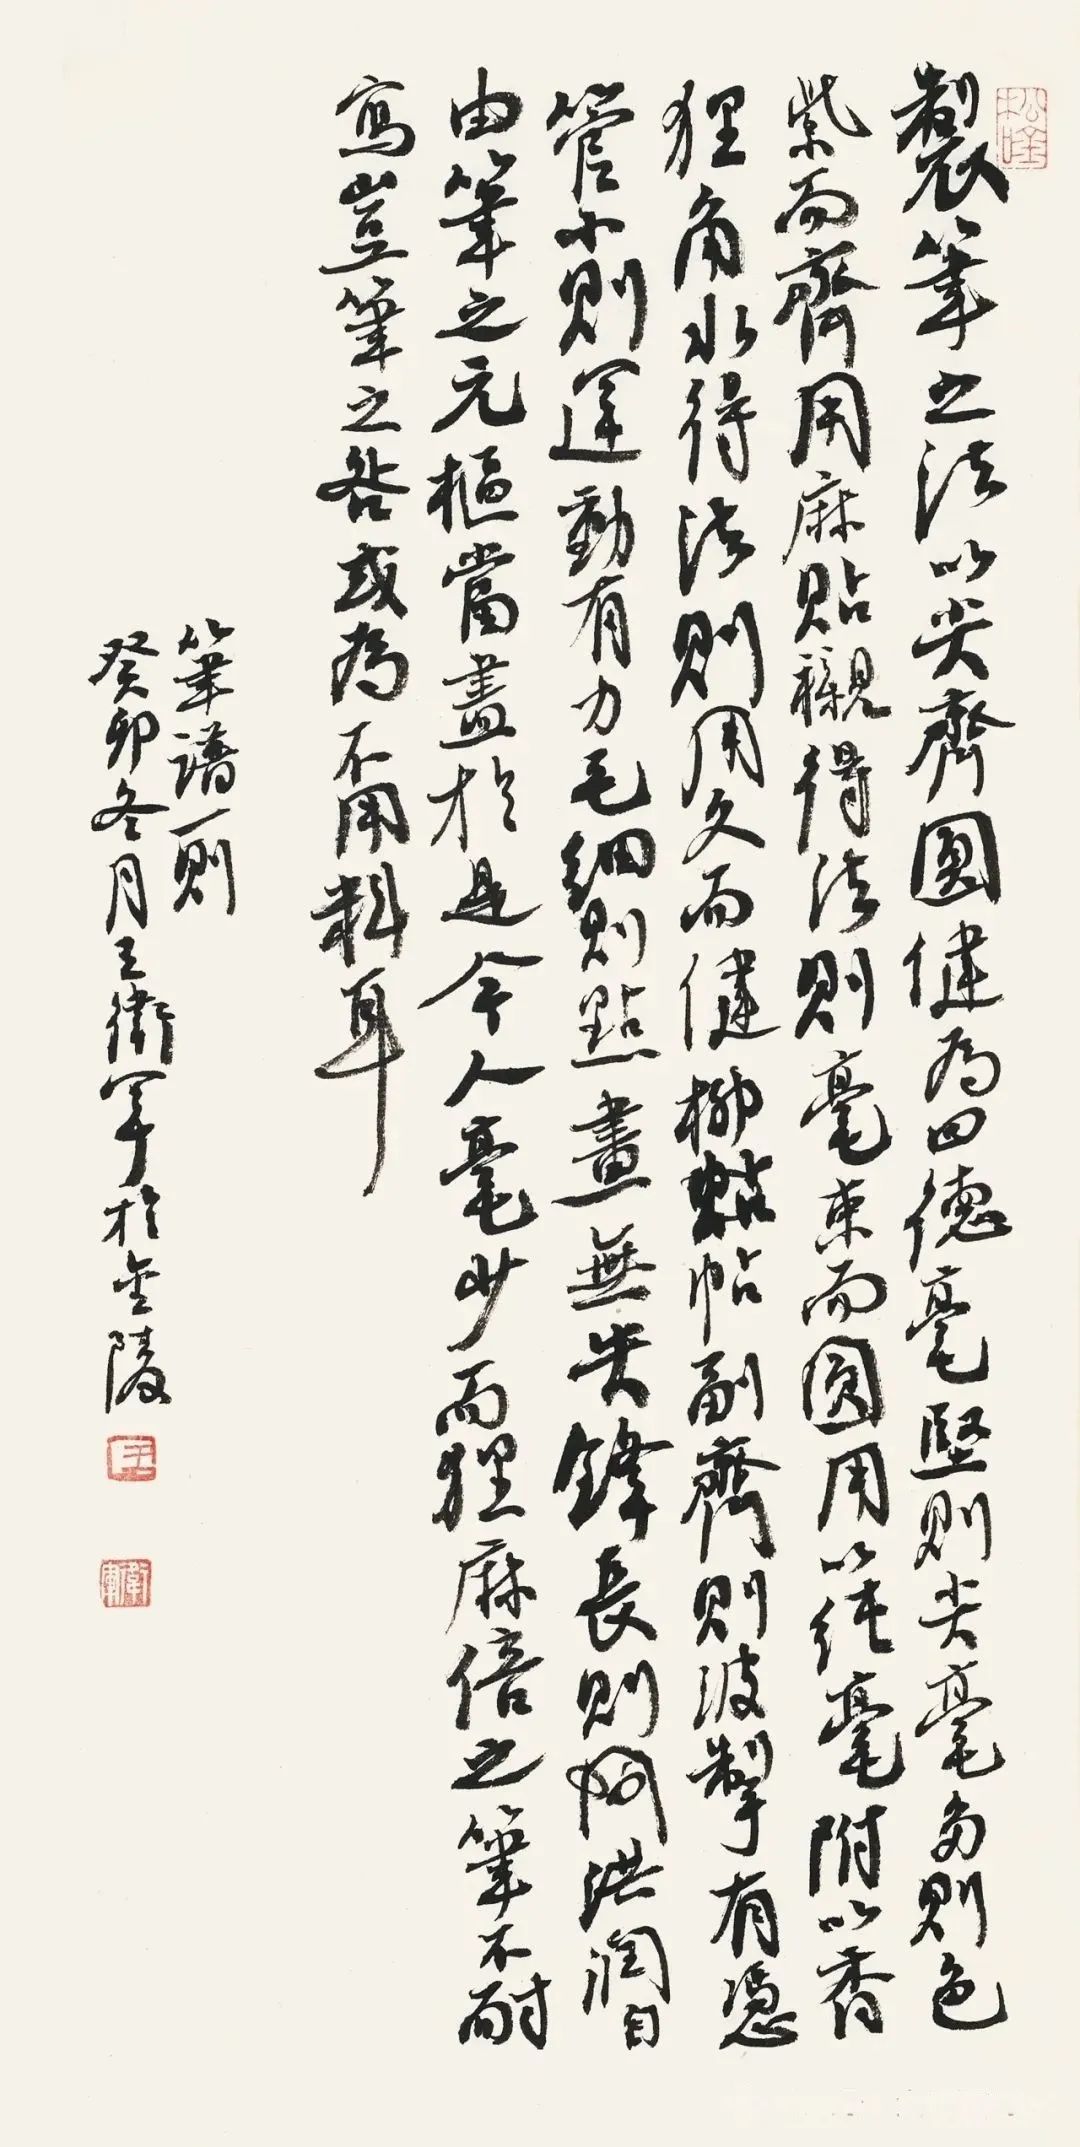 製筆之法以尖齊圓健為四德毫堅則尖毫多則色
紫而齊用麻貼襯得法則毫束而圓用以純毫附以香
狸角水得法則用久而健柳帖副齊則波掣有憑
管小則運動有力毛細則點畫無失鋒長則洪潤自
由筆之元樞當盡於是今人毫少而狸麻倍之筆不耐
寫豈筆之咎或為不用料耳
筆譜一則
癸卯冬月王衛軍於金陵
王
衛軍